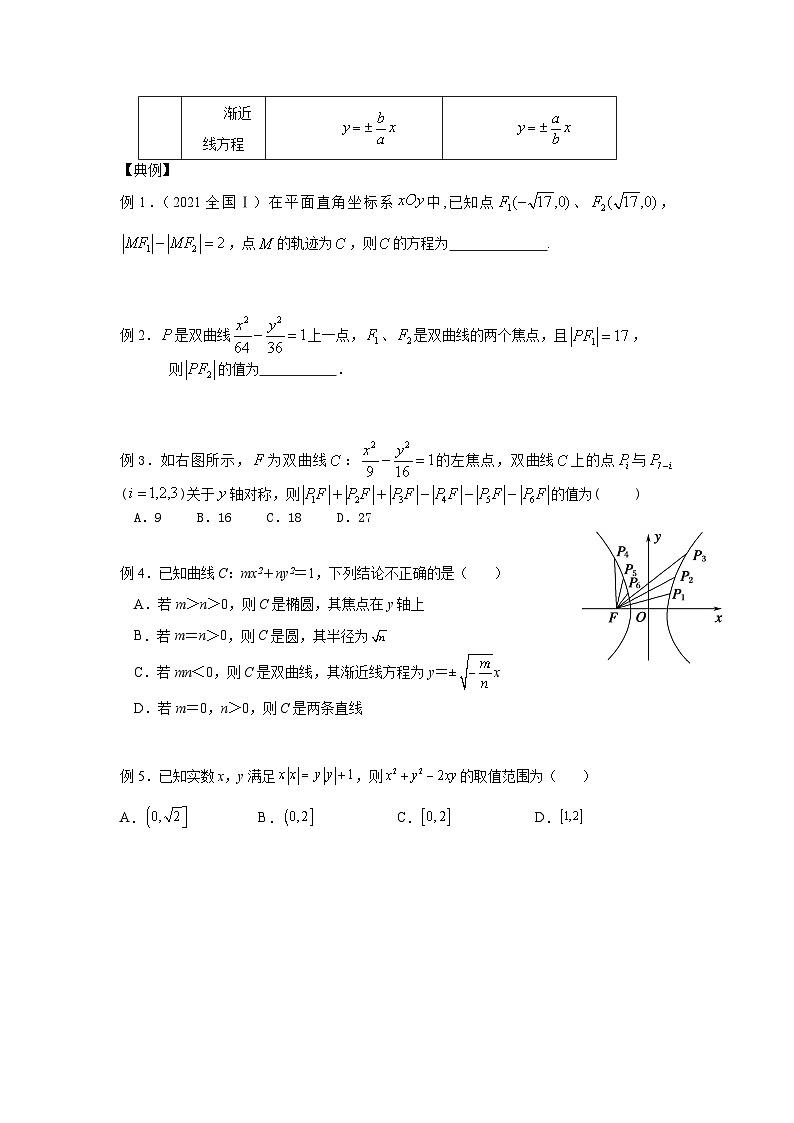 渐近线方程 y=±b/a x y=±a/b x
【典例】
例1.(2021全国Ⅰ)在平面直角坐标系xOy中,已知点F₁(-√17,0)、F₂(√17,0),
|MF₁|-|MF₂|=2,点M的轨迹为C,则C的方程为______________.
例2.P是双曲线x²/64-y²/36=1上一点,F₁、F₂是双曲线的两个焦点,且|PF₁|=17,
则|PF₂|的值为___________.
例3.如右图所示,F为双曲线C:x²/9-y²/16=1的左焦点,双曲线C上的点Pᵢ与P₇₋ᵢ
(i=1,2,3)关于y轴对称,则|P₁F|+|P₂F|+|P₃F|-|P₄F|-|P₅F|-|P₆F|的值为( )
A.9 B.16 C.18 D.27
例4.已知曲线C:mx²+ny²=1,下列结论不正确的是( )
A.若m>n>0,则C是椭圆,其焦点在y轴上
B.若m=n>0,则C是圆,其半径为√n
C.若mn<0,则C是双曲线,其渐近线方程为y=±√(-m/n)x
D.若m=0,n>0,则C是两条直线
y
P₄
P₃
P₅
P₂
P₆
P₁
F O x
例5.已知实数x,y满足x|x|=y|y|+1,则x²+y²-2xy的取值范围为( )
A.(0,√2] B.(0,2] C.[0,2] D.[1,2]